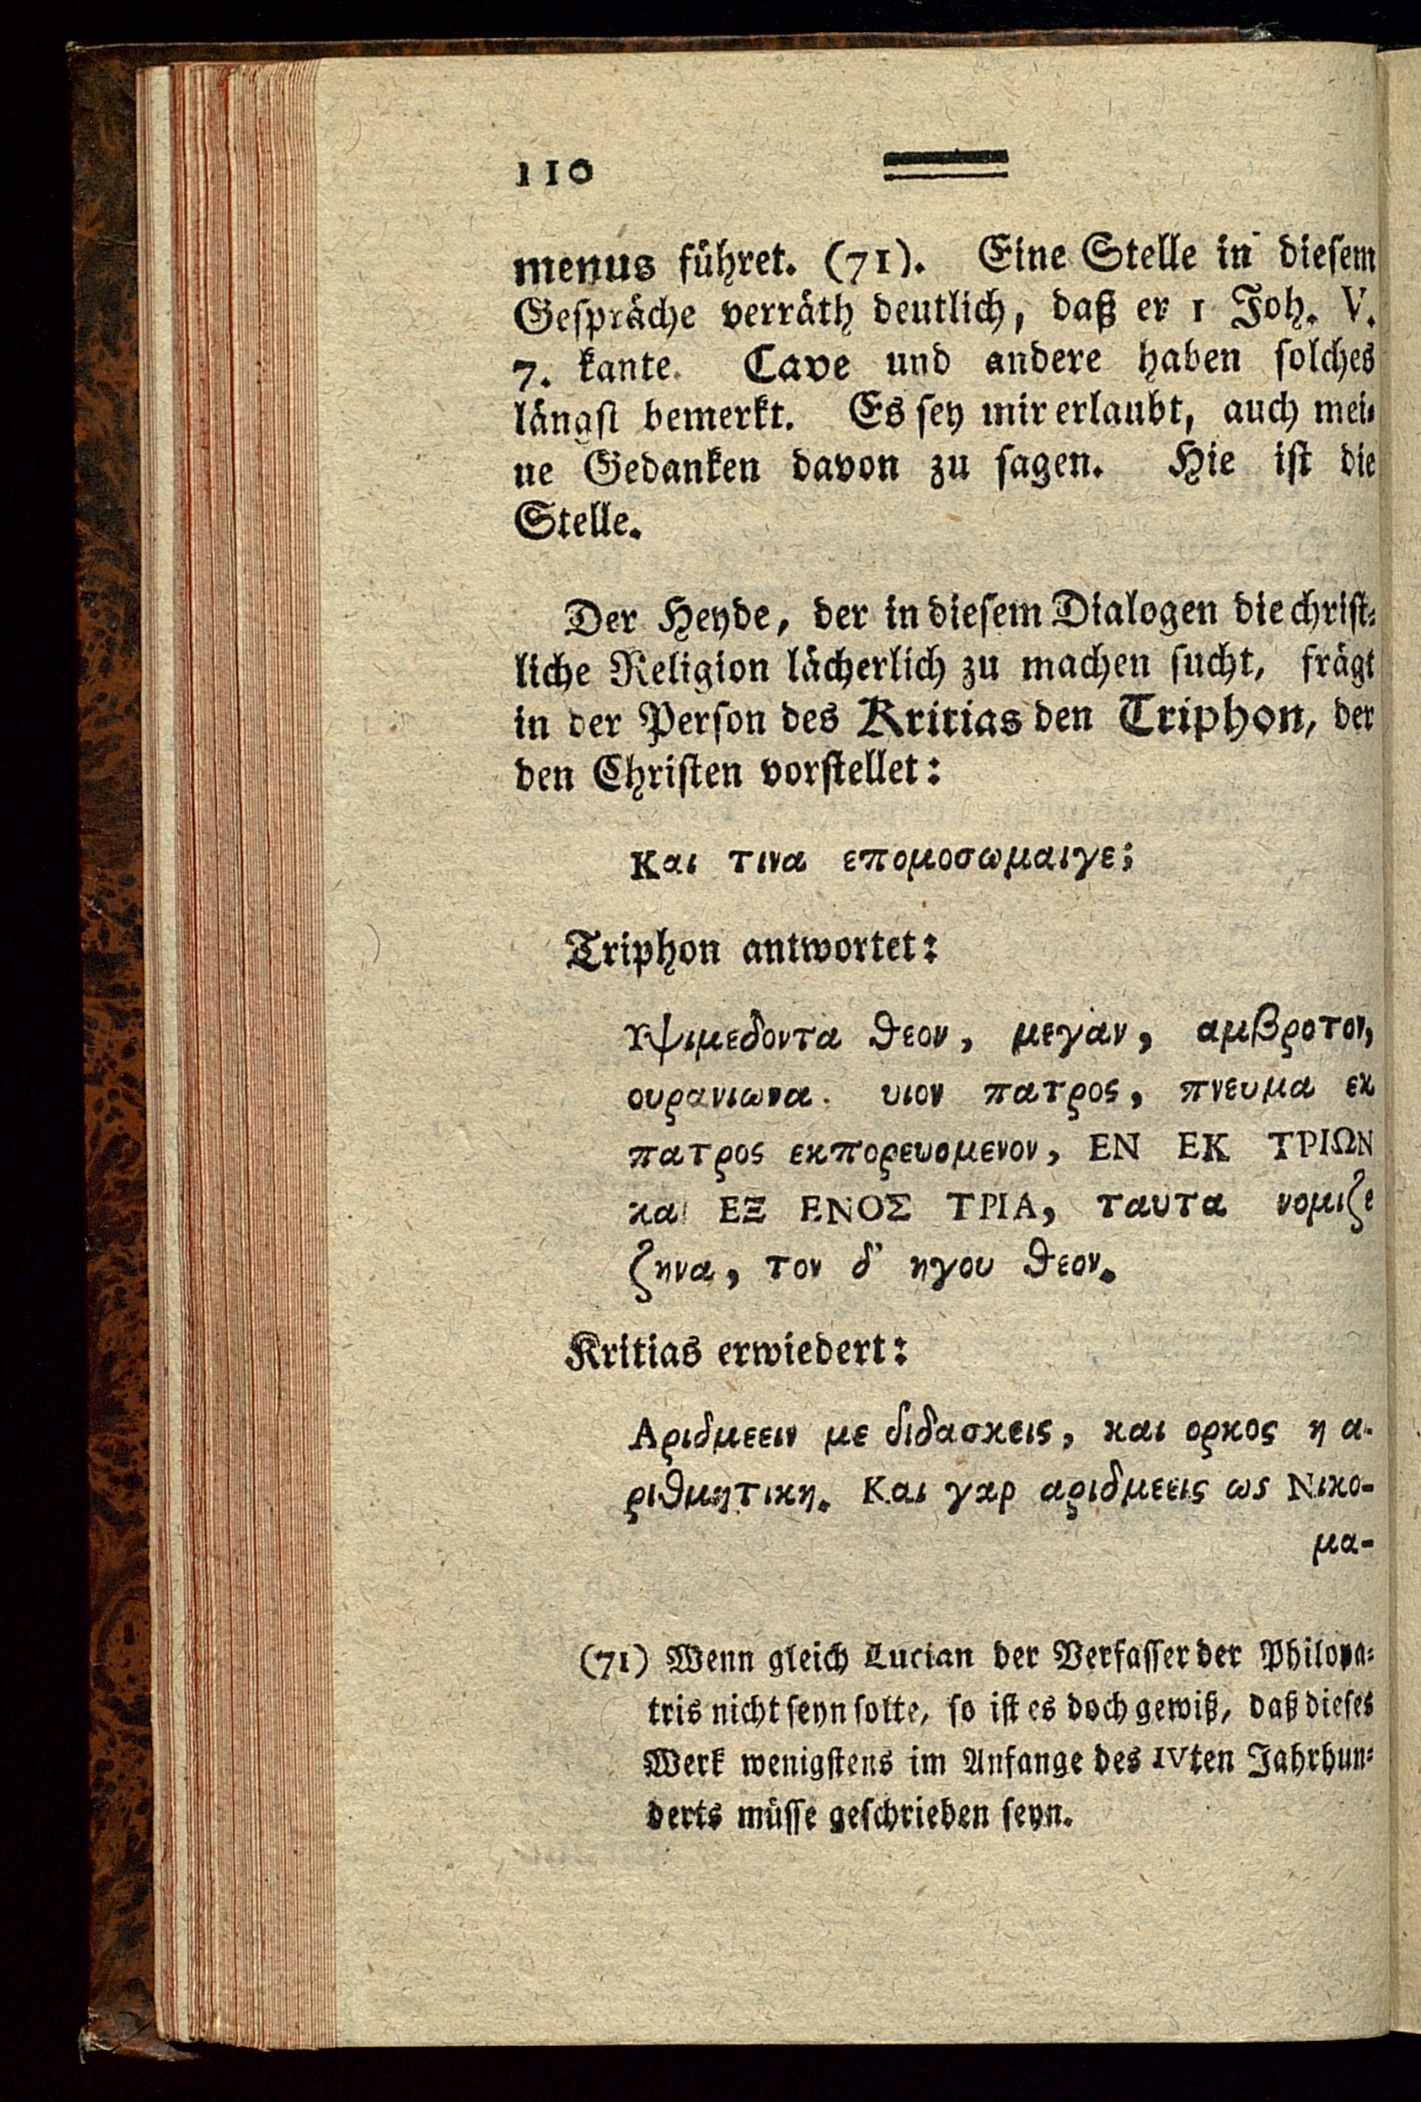 110
menus führet. (71). Eine Stelle in diesem
Gespräche verräth deutlich, daß er 1 Joh. V.
7. kante. Cave und andere haben solches
längst bemerkt. Es sey mir erlaubt, auch mei-
ne Gedanken davon zu sagen. Hie ist die
Stelle.
Der Heyde, der in diesem Dialogen die christ-
liche Religion lächerlich zu machen sucht, frägt
in der Person des Kritias den Triphon, der
den Christen vorstellet:
Και τινα επομοσωμαιγε;
Triphon antwortet:
Υψιμεδοντα θεον, μεγαν, αμβροτον,
ουρανιωνα. υιον πατρος, πνευμα εκ
πατρος εκπορευομενον, ΕΝ ΕΚ ΤΡΙΩΝ
και ΕΞ ΕΝΟΣ ΤΡΙΑ, ταυτα νομιζε
ζηνα, τον δ' ηγου θεον.
Kritias erwiedert:
Αριδμεειν με διδασκεις, και ορκος η α-
ριθμητικη. Και γαρ αριδμεεις ως Νικο-
μα-
(71) Wenn gleich Lucian der Verfasser der Philopa-
tris nicht seyn solte, so ist es doch gewiß, daß dieses
Werk wenigstens im Anfange des IVten Jahrhun-
derts müsse geschrieben seyn.